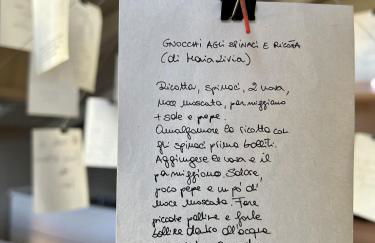 GNOCCHI AGLI SPINACI E RICOTTA
(di Maia Livia)
Ricotta, spinaci, 2 uova,
noce moscata, parmiggiano
+ sale e pepe.
Amalgamare la ricotta con
gli spinaci prima bolliti.
Aggiungere le uova e il
parmiggiano. Salare,
poco pepe e un po' di
noce moscata. Fare
piccole palline e farle
bollire dentro all'acqua